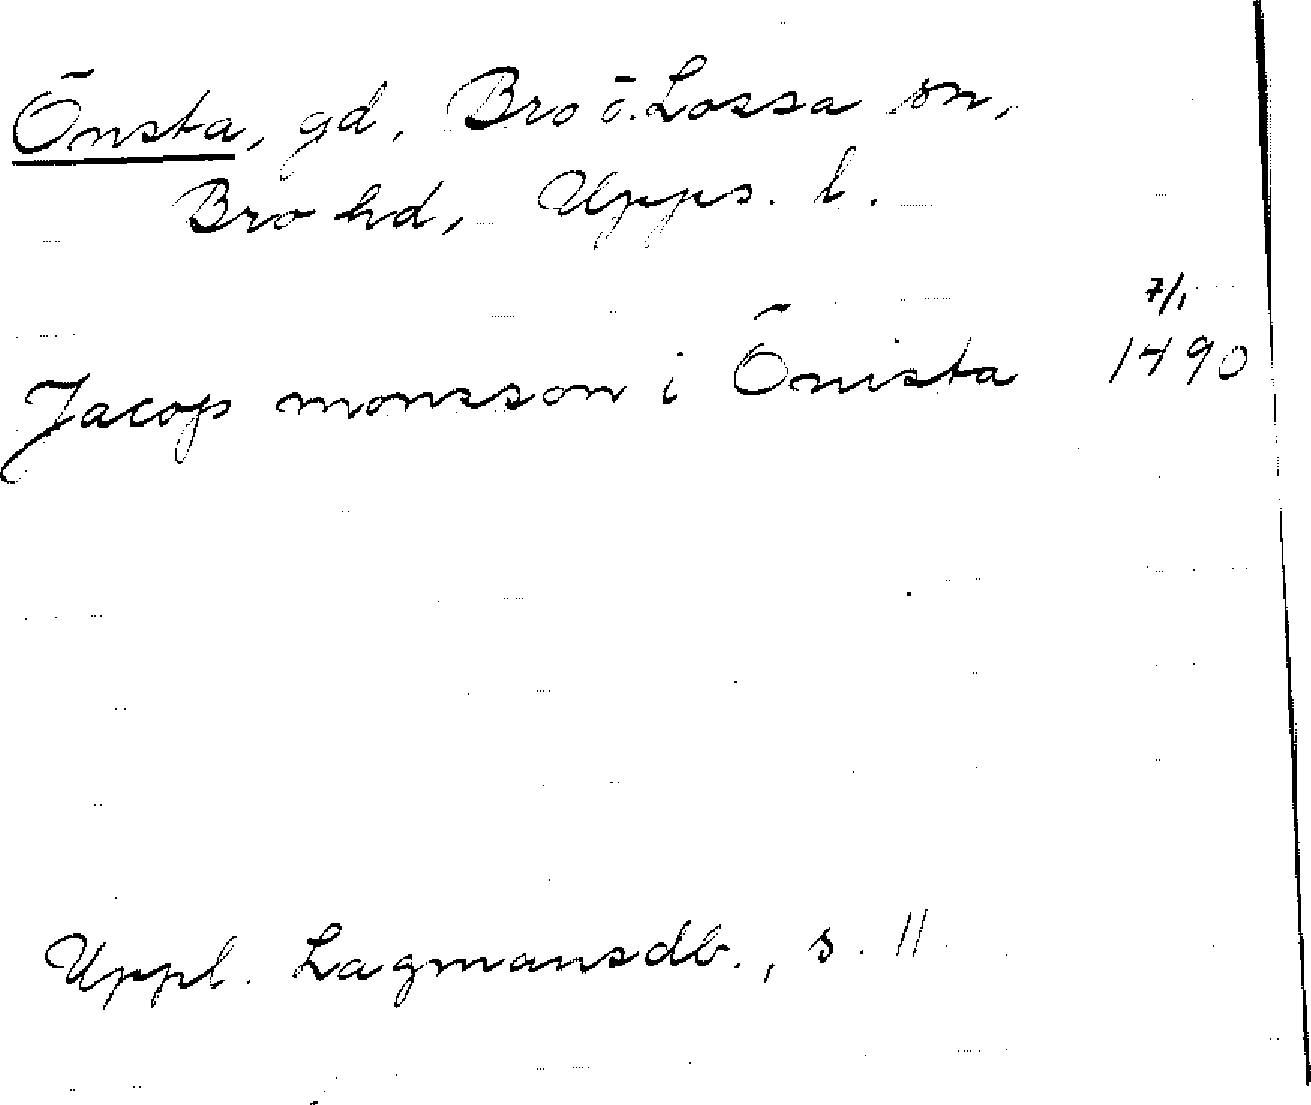 Önsta, gd, Bro ö. Lossa sn,
Bro hd, Upps. l.
7/1
Jacop monsson i Önista 1490
Uppl. Lagmansdb., s. 11